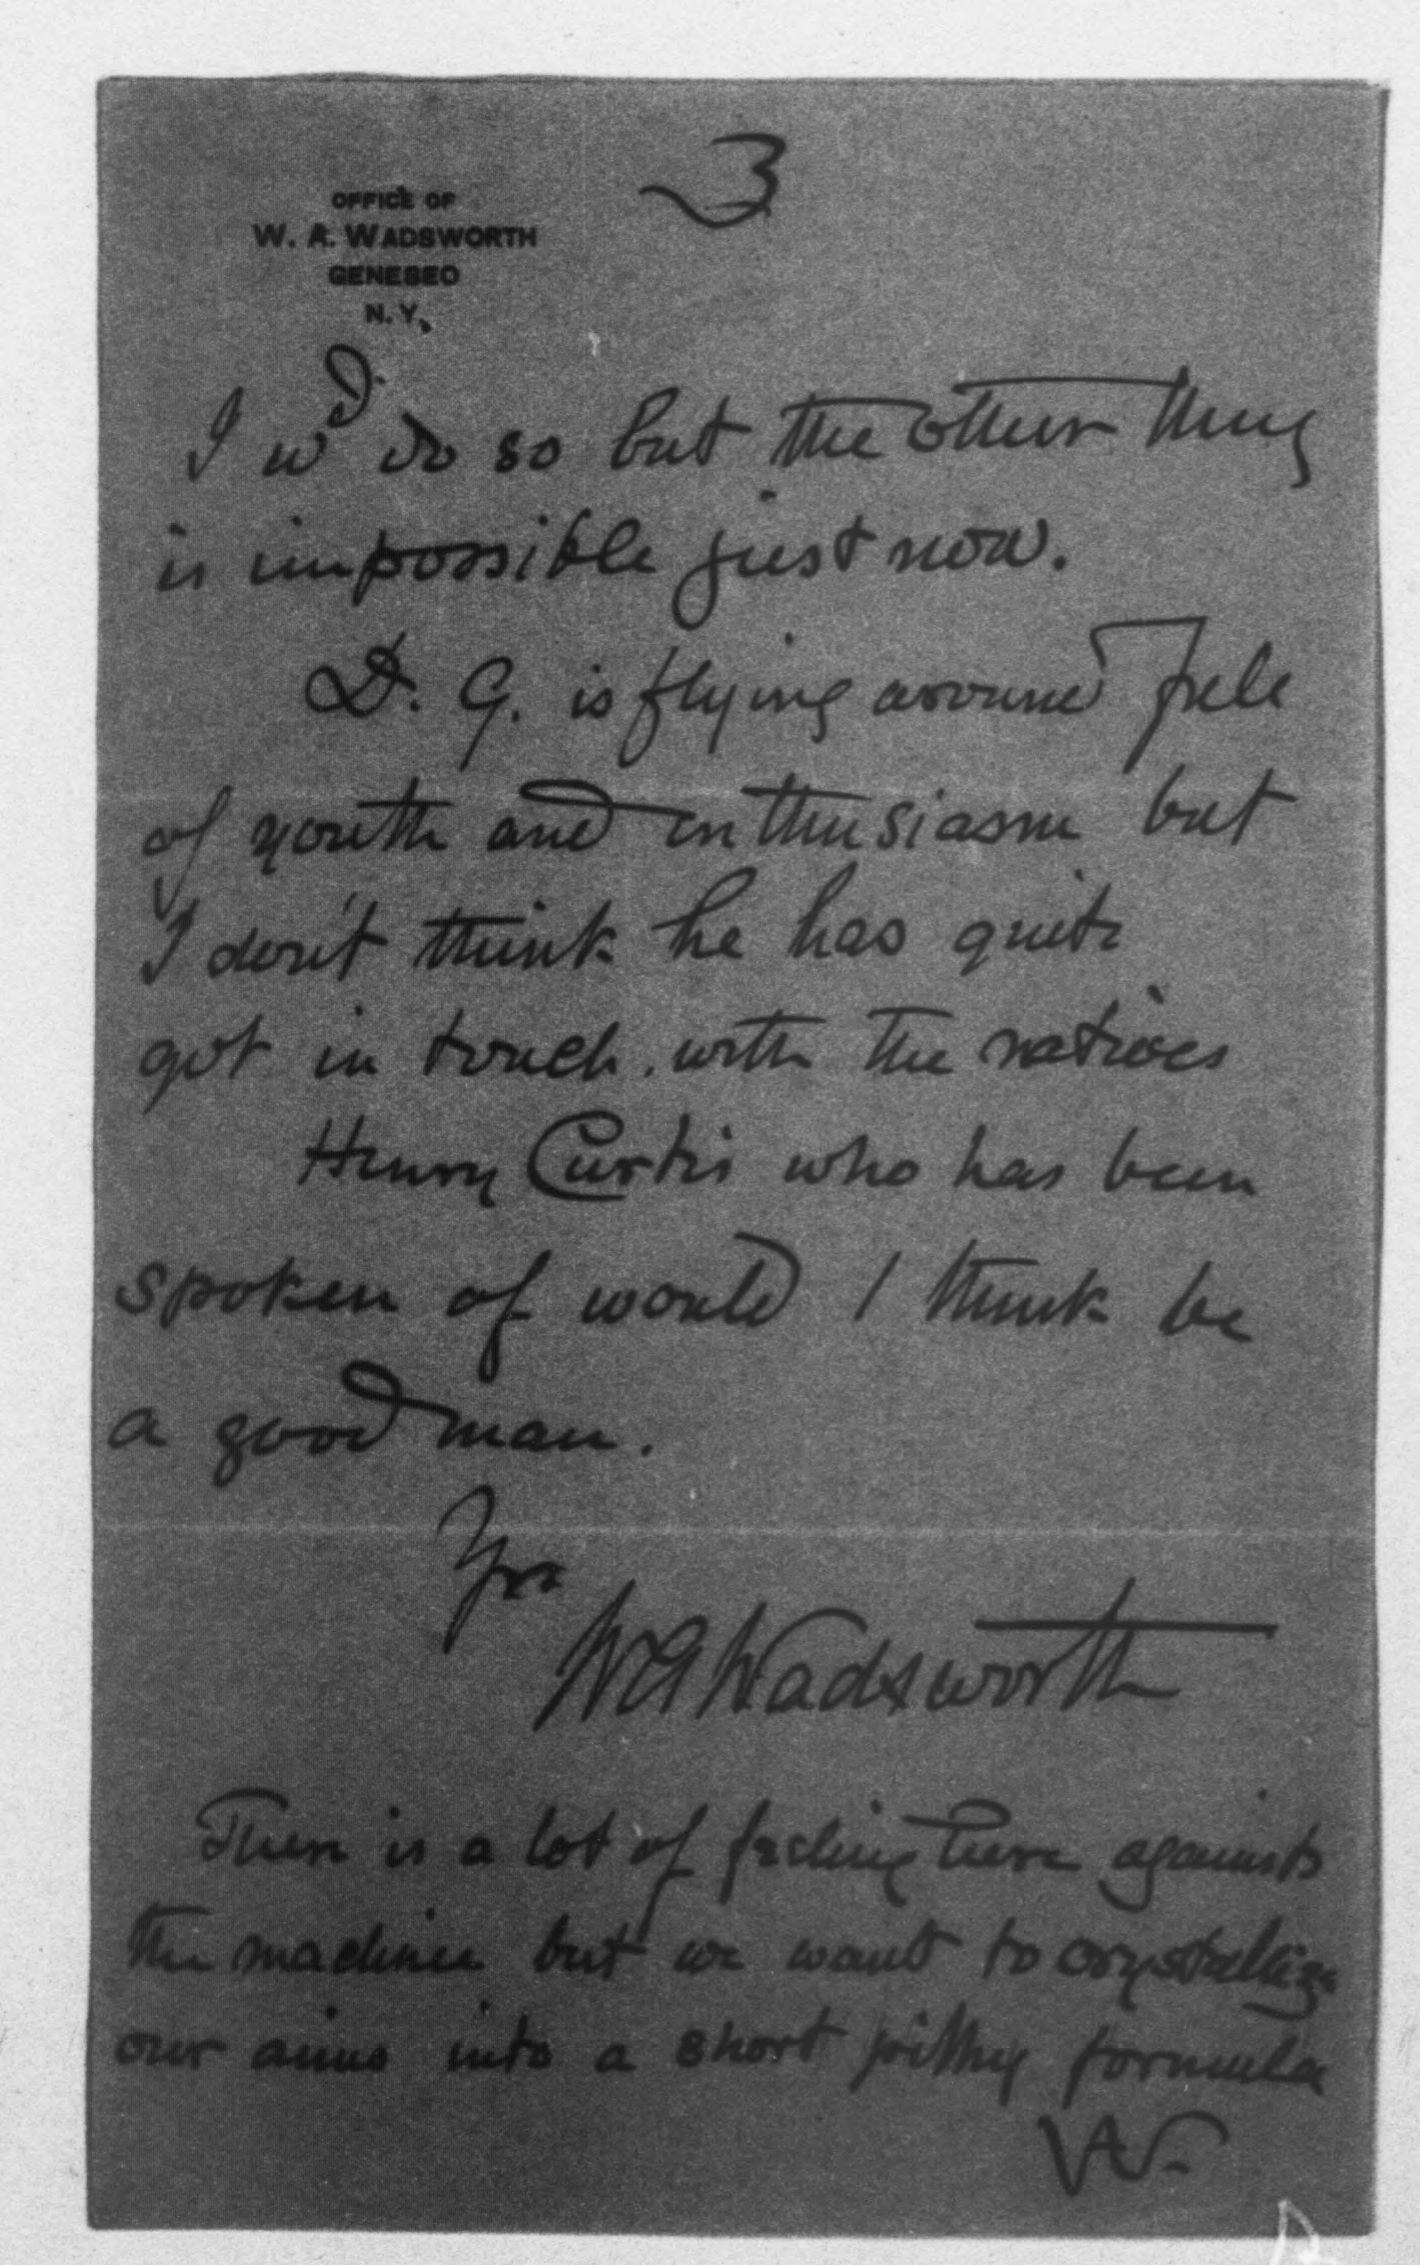 3
OFFICE OF
W. A. WADSWORTH
GENESEO
N. Y.
I wd. do so but the other thing
is impossible just now.
D. G. is flying around full
of youth and enthusiasm but
I don't think he has quite
got in touch with the natives
Henry Curtis who has been
spoken of would I think be
a good man.
Yrs
WAWadsworth
There is a lot of feeling here against
the machine but we want to crystallize
our aims into a short pithy formula
W.